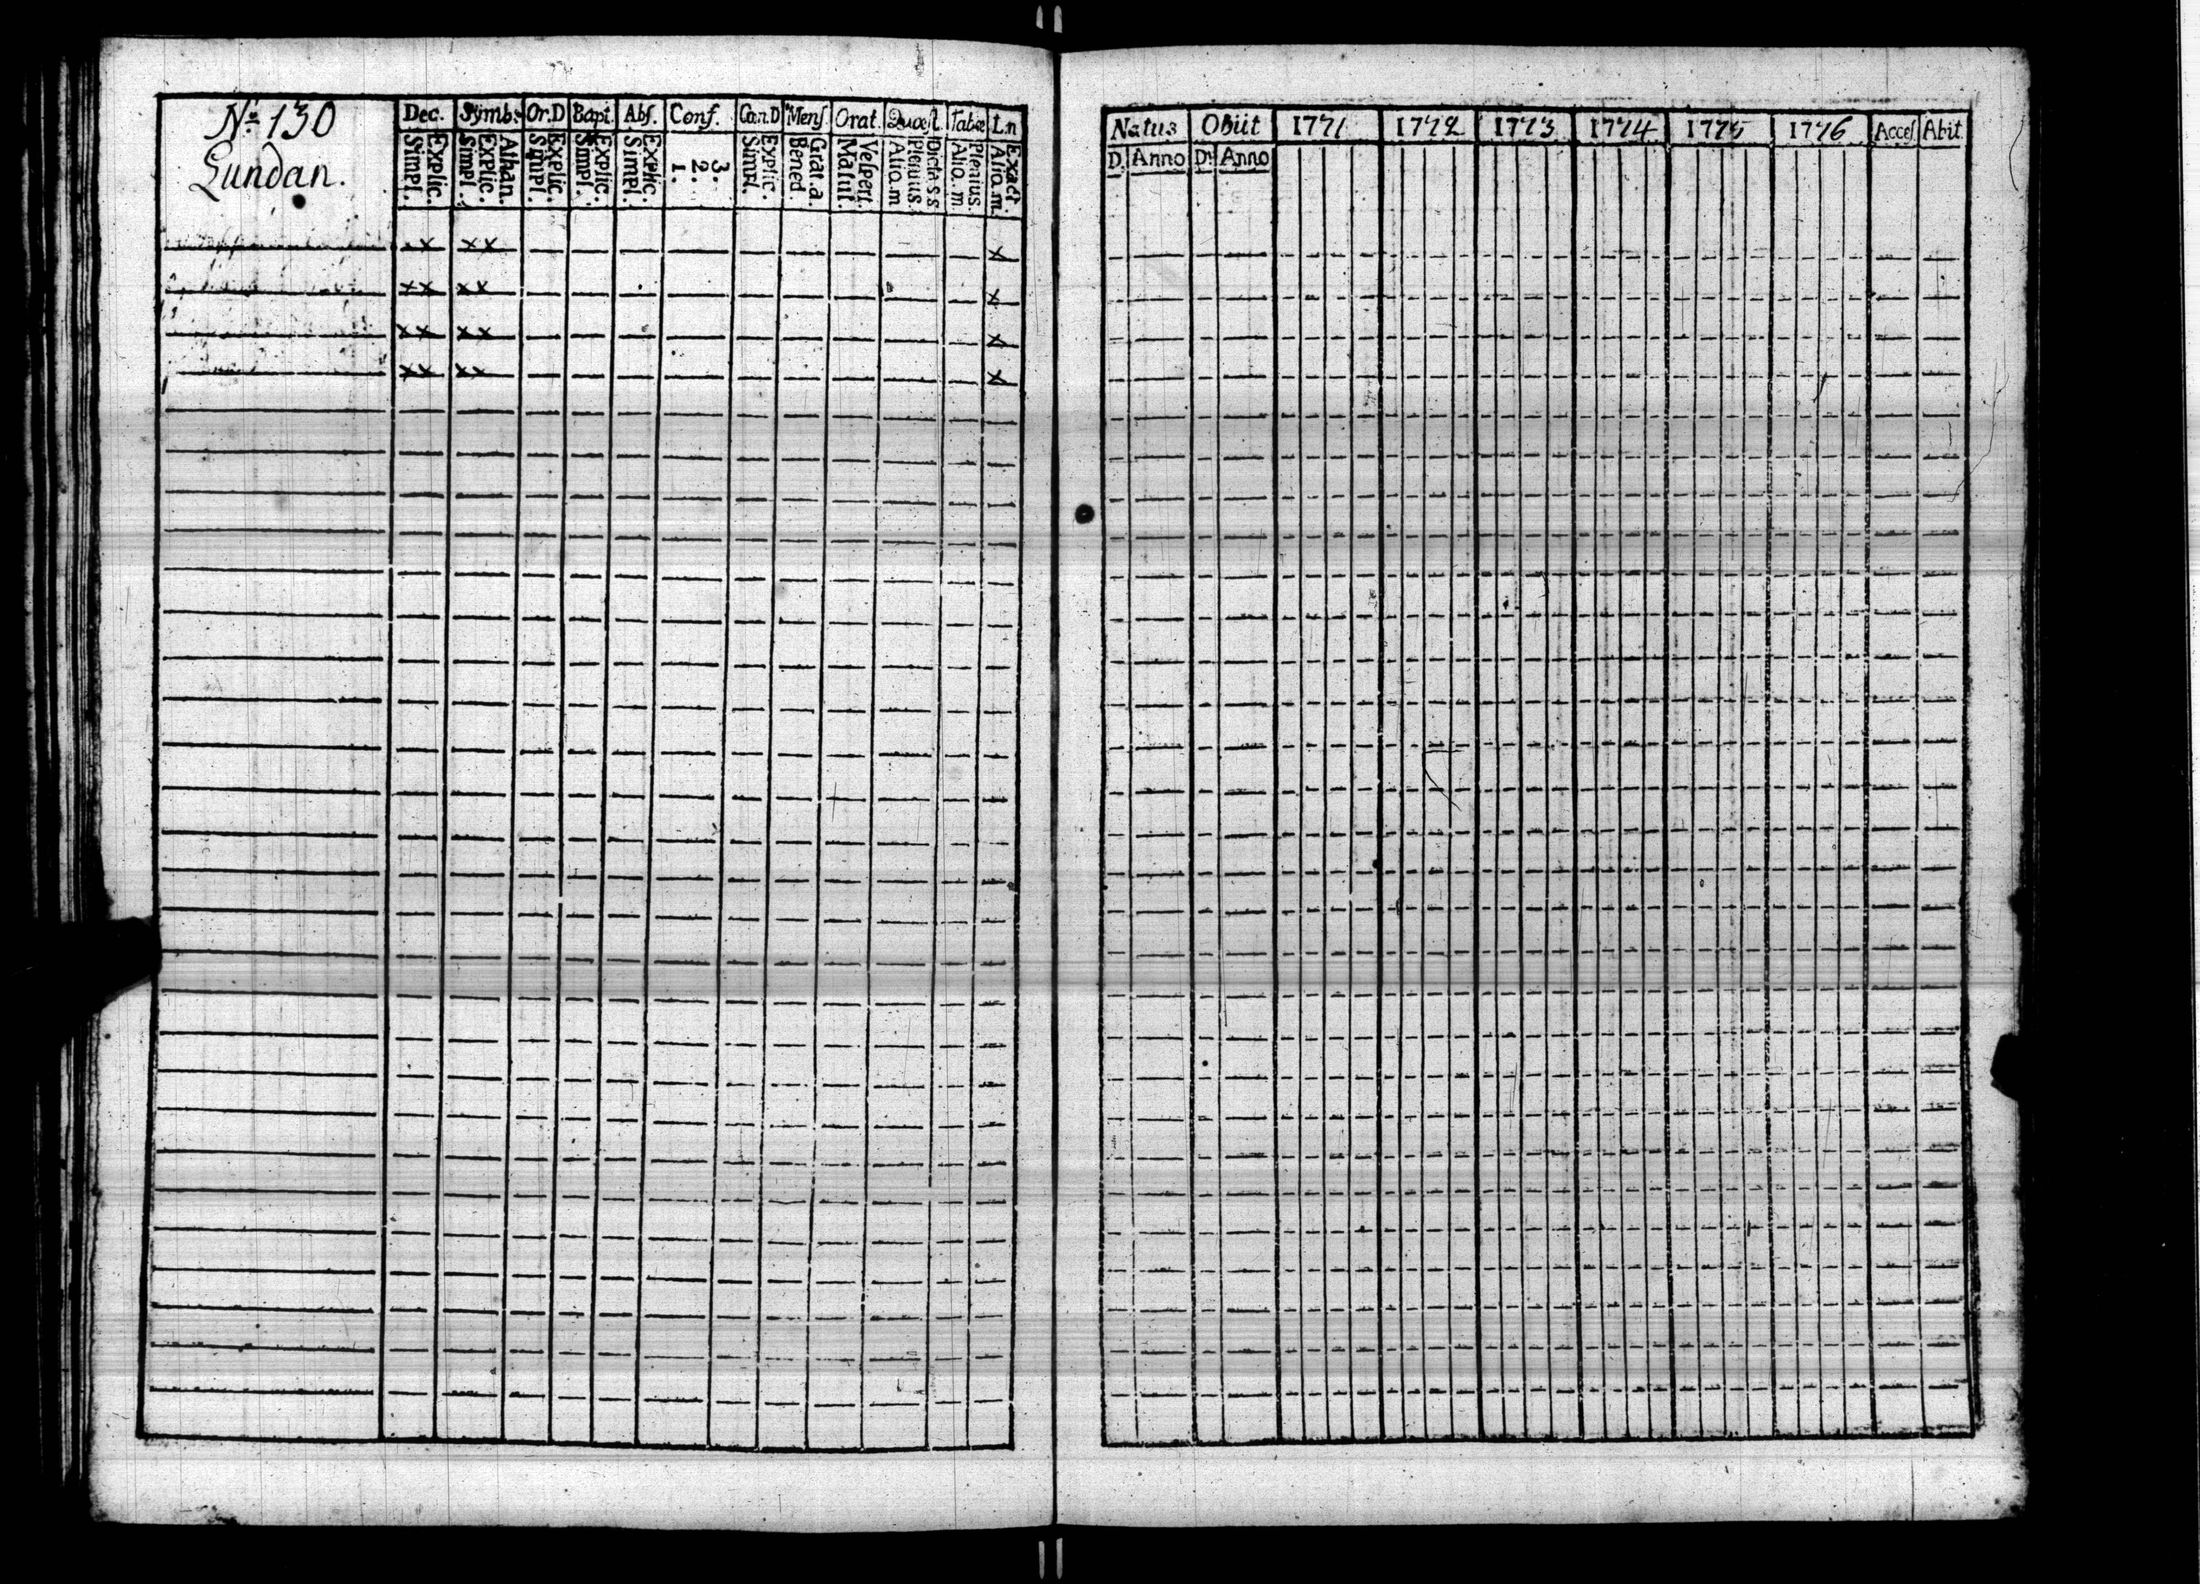 No 130
Lundan.
Dec. Symb. Or.D Bapt. Abs. Conf. Cœn.D Mens. Orat. Quæst. Tabæ Ln
Explic. Simpl.
Athan. Explic. Simpl.
Explic. Simpl.
Explic. Simpl.
Explic. Simpl.
3. 2. 1.
Explic. Simpl.
Grat.a. Bened.
Vespert. Matut.
Dicta s.s Plenius. Alio.m
Plenius. Alio.m.
Exact. Alio.m.
x x x x
x x x x x
x x x x x
x x x x x
Natus Obiit 1771 1772 1773 1774 1775 1776 Acces Abit
D. Anno D. Anno